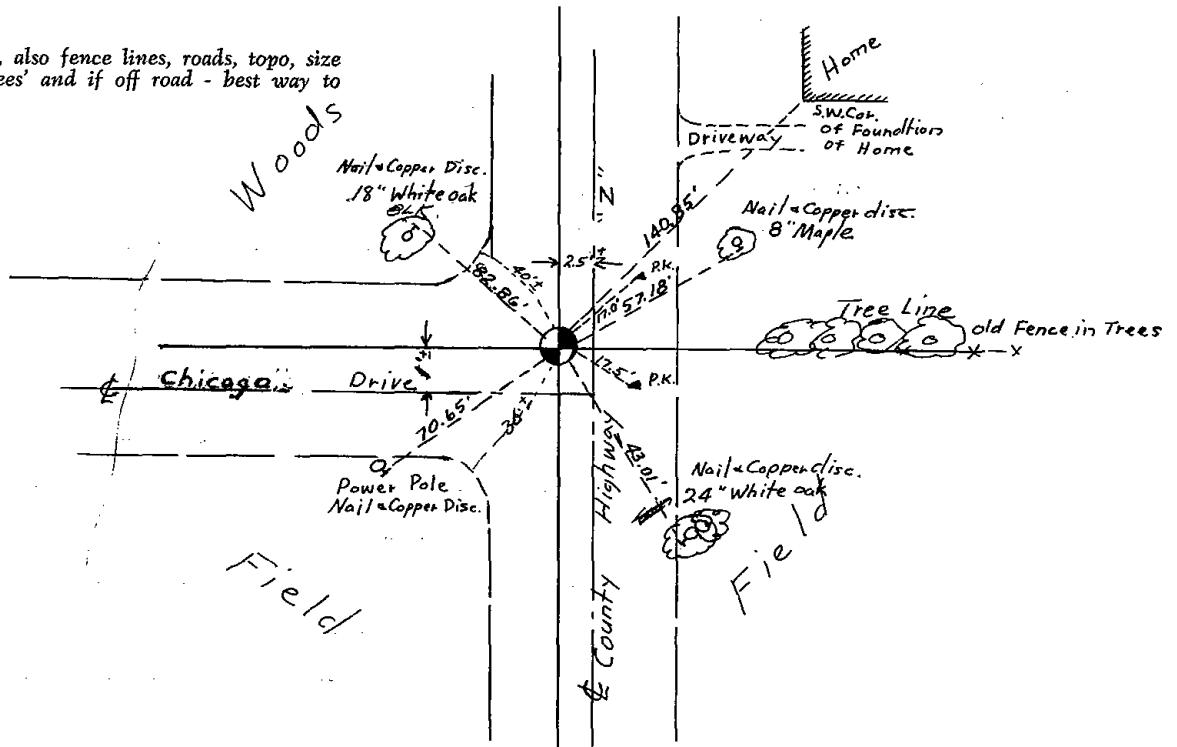 , also fence lines, roads, topo, size
ees' and if off road - best way to
Woods
Home
S.W.Cor.
of Foundtion
of Home
Driveway
Nail & Copper Disc.
18" White oak
"Z"
140.85'
Nail & Copper disc.
8" Maple
2.5'±
40'±
82.86'
P.K.
17.0'
57.18'
Tree Line
old Fence in Trees
x
12.5'
P.K.
℄ Chicago Drive
70.65'
43.01'
Power Pole
Nail & Copper Disc.
Nail & Copper disc.
24" White oak
Field
Field
℄ County Highway